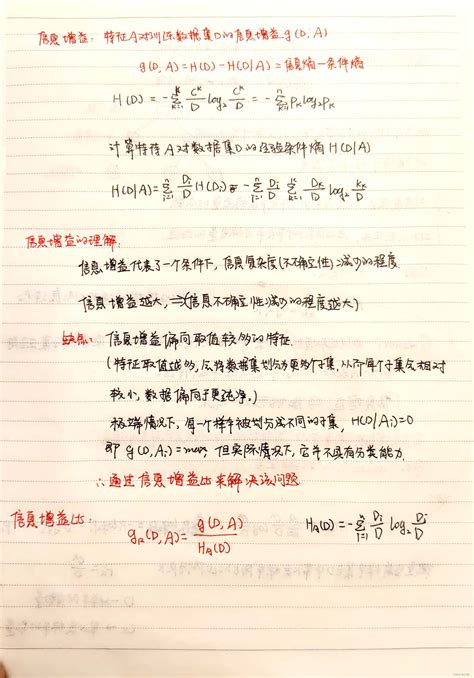 信息增益: 特征A对训练数据集D的信息增益 g(D, A)
g(D, A) = H(D) - H(D|A) = 信息熵 - 条件熵
H(D) = -∑_{k=1}^{K} C^k/D log₂ C^k/D = -∑_{k=1}^{n} p_k log₂ p_k
计算特征A对数据集D的经验条件熵 H(D|A)
H(D|A) = ∑_{i=1}^{n} D_i/D H(D_i) = -∑_{i=1}^{n} D_i/D ∑_{k=1}^{K}
信息增益的理解:
信息增益代表了一个条件下, 信息复杂度(不确定性)减少的程度
信息增益越大, ⇒(信息不确定性减少的程度越大)
缺点: 信息增益偏向取值较多的特征
(特征取值越多, 会将数据集划分为更多个子集, 从而每个子集会相对
较小, 数据偏向于更纯净。)
极端情况下, 每一个样本被划分成不同的子集, H(D|A_i)=0
即 g(D, A_i) = max, 但实际情况下, 它并不具有分类能力.
∴通过信息增益比来解决该问题
信息增益比: g_R(D, A) = g(D, A)/H_A(D) H_A(D) = -∑_{i=1}^{n} D_i/D log₂ D_i/D